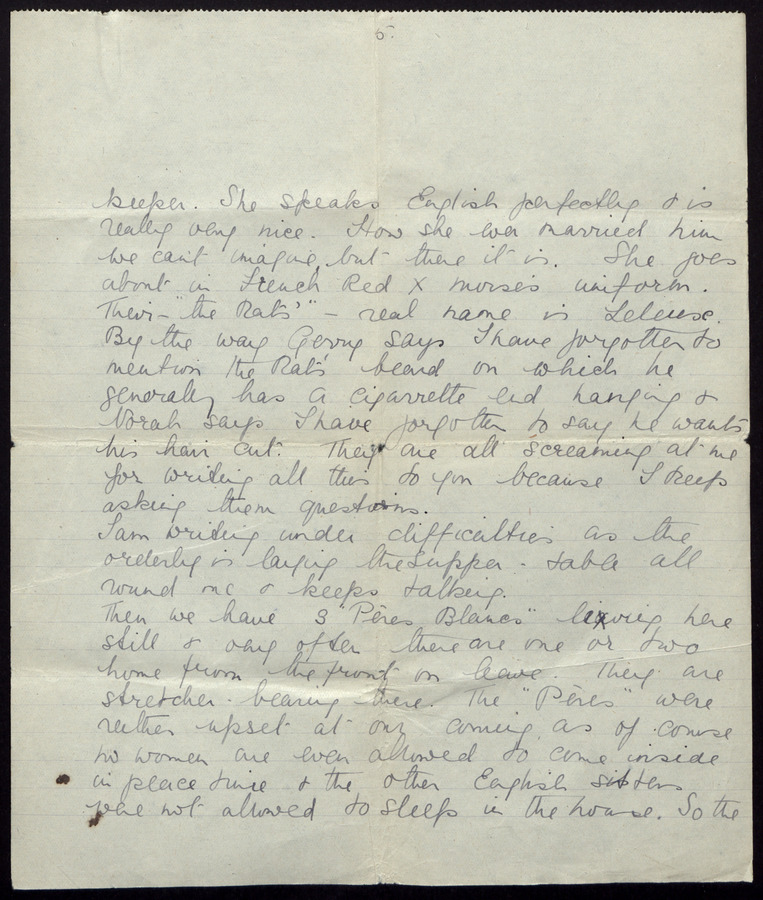 5.
keeper. She speaks English perfectly & is
really very nice. How she ever married him
we can't imagine, but there it is. She goes
about in French Red X nurse's uniform.
Their - "the Rats'" - real name is
By the way Gerry says I have forgotten to
mention the Rat's beard on which he
generally has a cigarrette end hanging &
Norah says I have forgotten to say he wants
his hair cut. They are all screaming at me
for writing all this to you because I keep
asking them questions.
I am writing under difficulties as the
orderley is laying the supper-table all
round me & keeps talking.
Then we have 3 "Pères Blancs" living here
still & very often there are one or two
home from the front on leave. They are
stretcher-bearing there. The "Pères" were
rather upset at our coming, as of course
no women are ever allowed to come inside
in peace time & the other English sisters
were not allowed to sleep in the house. So the